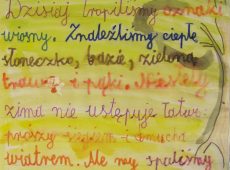 Dzisiaj tropiliśmy oznaki
wiosny. Znaleźliśmy ciepłe
słoneczko, bazie, zieloną
trawę i pąki. Niestety
zima nie ustępuje łatwo:
prószy śniegiem i dmucha
wiatrem. Ale my spaliśmy